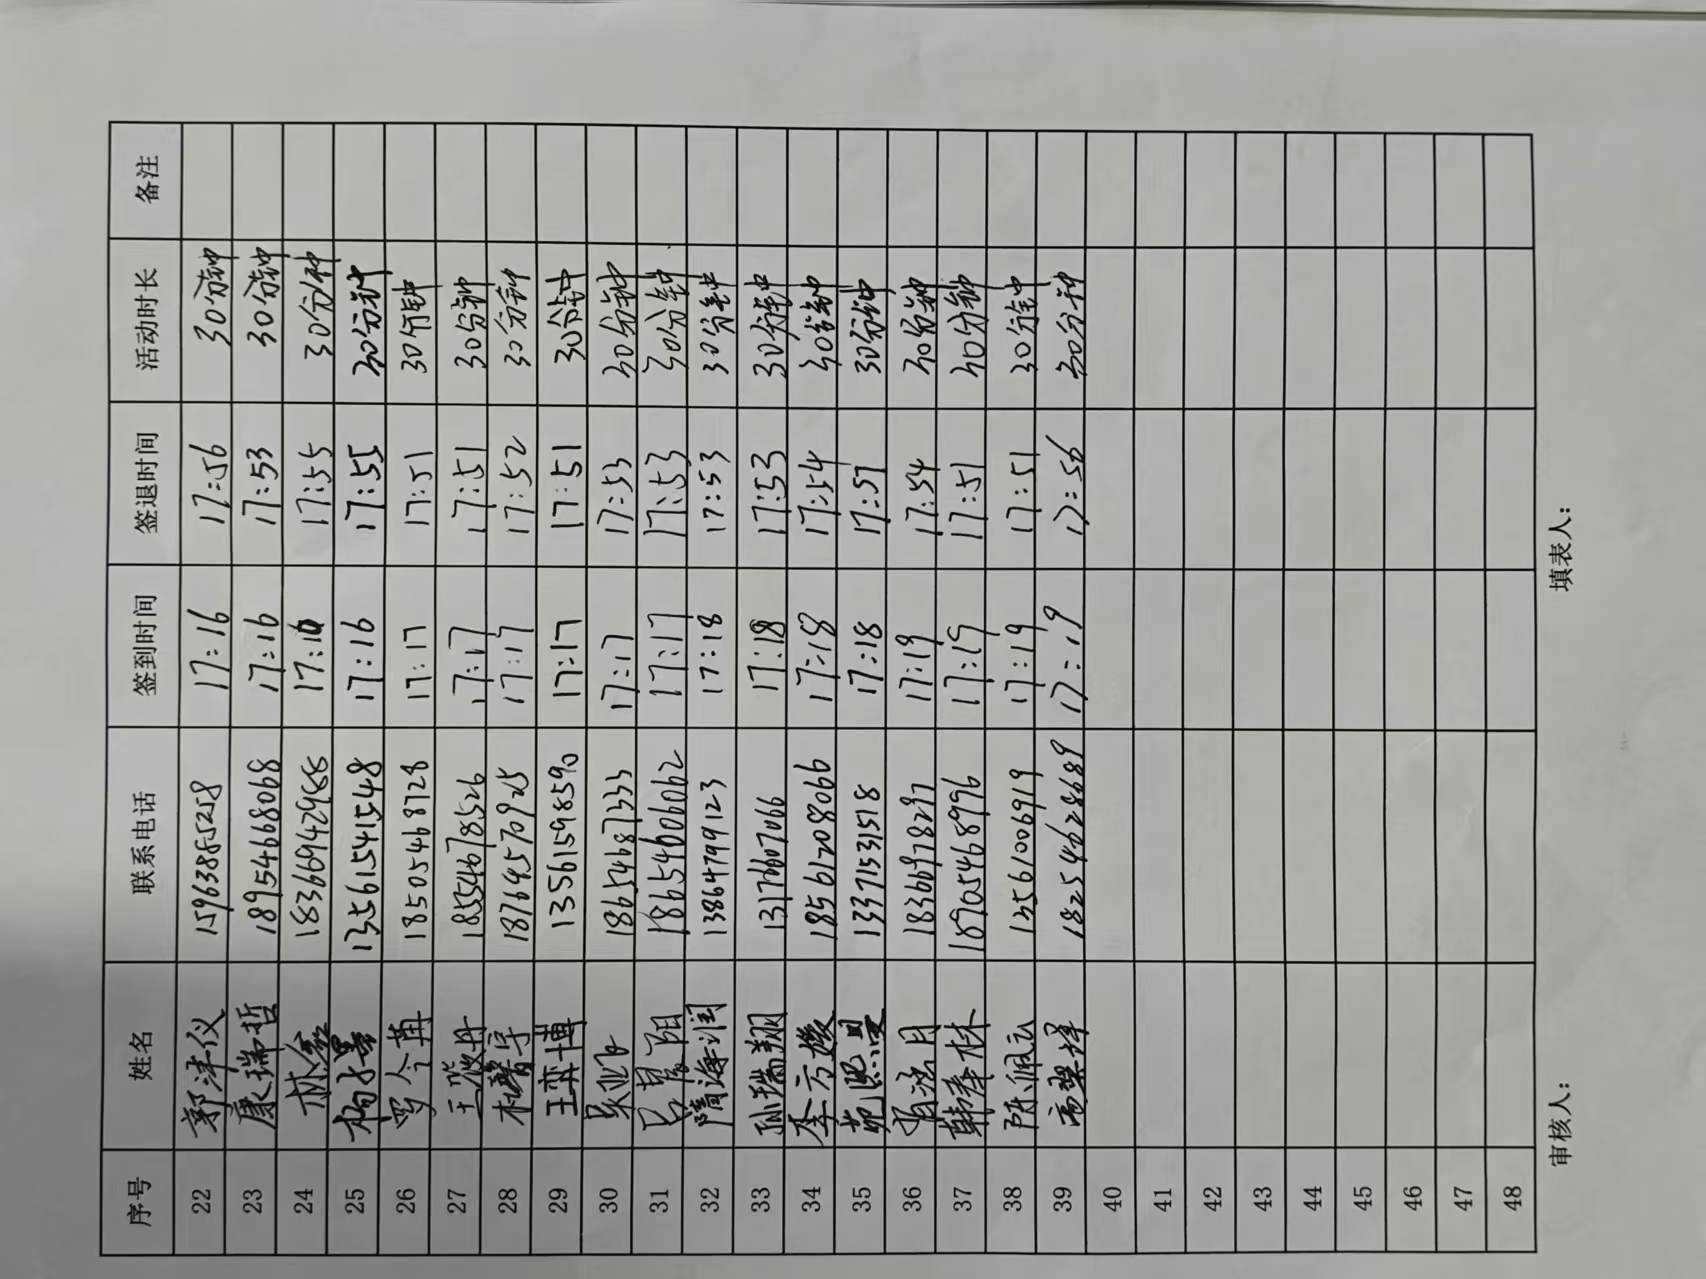 序号 姓名 联系电话 签到时间 签退时间 活动时长 备注
22 郭津仪 15963885258 17:16 17:56 30分钟
23 康瑞哲 18954668068 17:16 17:53 30分钟
24 林鑫 18366942988 17:16 17:55 30分钟
25 13561541548 17:16 17:55 30分钟
26 罗今再 18505468728 17:17 17:51 30分钟
27 18554678526 17:17 17:51 30分钟
28 杜馨宇 18764570925 17:17 17:52 30分钟
29 王弈博 13561598590 17:17 17:51 30分钟
30 吴亚飞 18654687333 17:17 17:53 30分钟
31 吕晨阳 18654606062 17:17 17:53 30分钟
32 隋海润 13864799123 17:18 17:53 30分钟
33 孙瑞翔 13176607066 17:18 17:53 30分钟
34 李方媛 18561208066 17:18 17:54 30分钟
35 苑熙曼 13371531518 17:18 17:51 30分钟
36 肖涵月 18366978297 17:19 17:54 30分钟
37 韩春林 18705468996 17:19 17:51 30分钟
38 陈佩云 13561006919 17:19 17:51 30分钟
39 高翠译 18254628689 17:19 17:56 30分钟
40
41
42
43
44
45
46
47
48
审核人: 填表人: